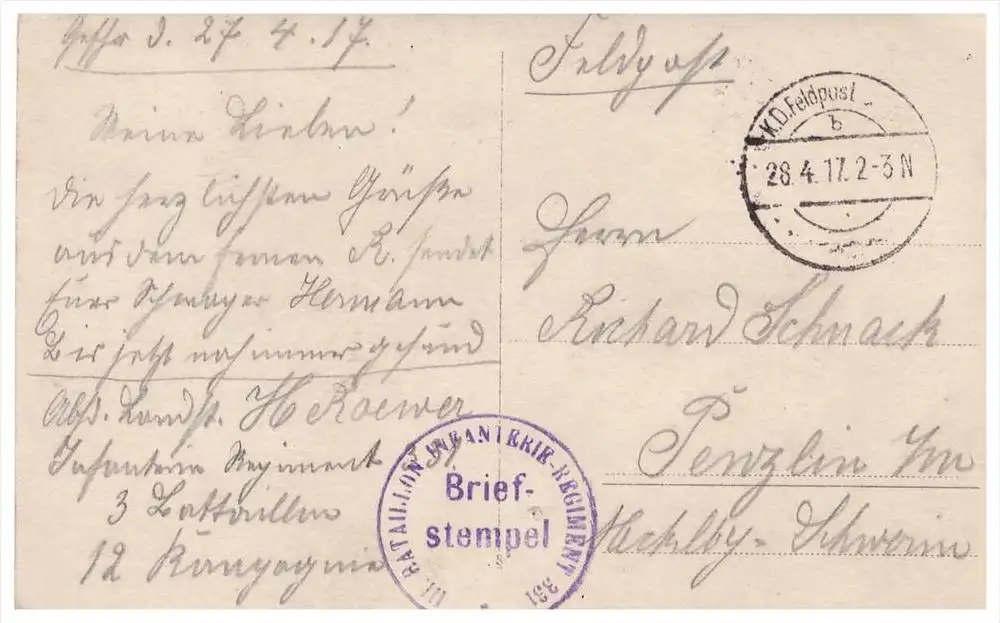 Geschr d. 27 4. 17.
Meine Lieben!
die herzlichsten Grüße
aus dem fernen R. sendet
Euer Schwager Hermann
Bis jetzt noch immer gesund
Abs. Landst. H Roewer
Infanterie Regiment 331
3 Battaillon
12 Kompagnie
Feldpost
K.D.Feldpost
b
28.4.17.2-3N
Herrn
Richard Schnack
Penzlin i/m
Mecklbg-Schwerin
III. BATAILLON INFANTERIE-REGIMENT 331
Brief-
stempel